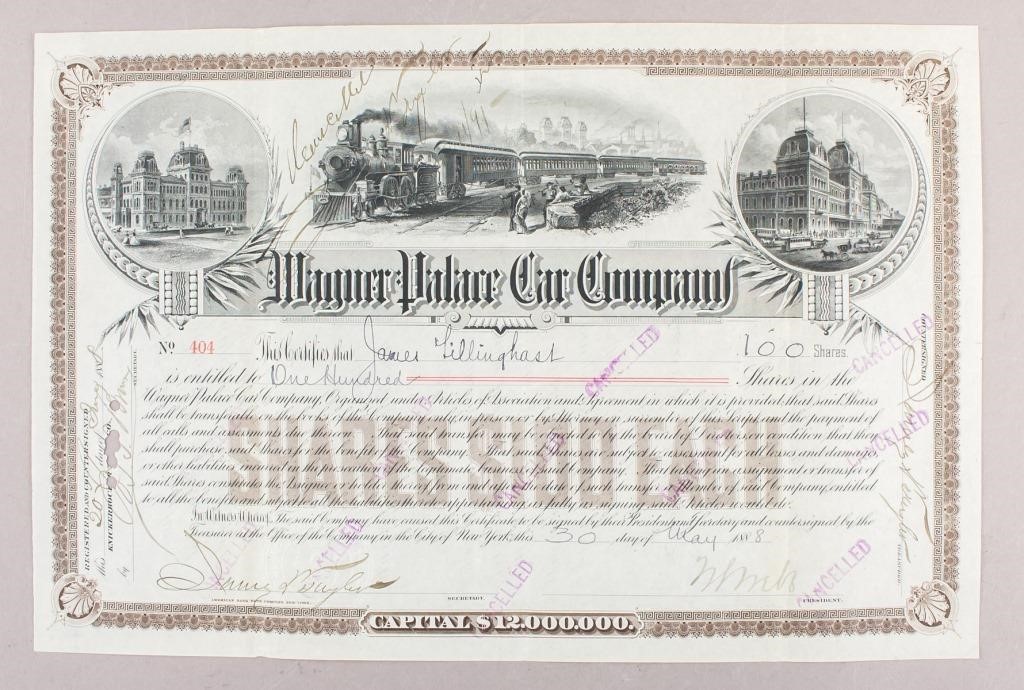 Cancelled
Wagner Palace Car Company
No 404 This Certifies that James Tillinghast 100 Shares.
is entitled to One Hundred Shares in the
Wagner Palace Car Company, Organized under Articles of Association and Agreement in which it is provided that said Shares
shall be transferable on the books of the Company only, in person or by Attorney on the surrender of this and the payment of
all calls and assessments due thereon. That said transfer may be by the Board of Trustees on condition that they
shall purchase said Shares for the benefit of the Company. That said Shares are subject to assessment for all losses and damages
or other liabilities incurred in the prosecution of the Business of said Company. That
said Shares
to all the benefits and subject to as fully as signing said Articles would be.
In Witness Whereof, The said Company have caused this Certificate to be signed by their President and Secretary and countersigned by the
Treasurer at the Office of the Company in the City of New York this 30 day of May 1888
SECRETARY.
PRESIDENT.
AMERICAN BANK NOTE COMPANY, NEW YORK.
CAPITAL $12,000,000.
SHARES $100 EACH
REGISTERED AND COUNTERSIGNED
this
KNICKERBOCKER
by
SECRETARY.
COUNTERSIGNED
TREASURER
CANCELLED
CANCELLED
CANCELLED
CANCELLED
CANCELLED
CANCELLED